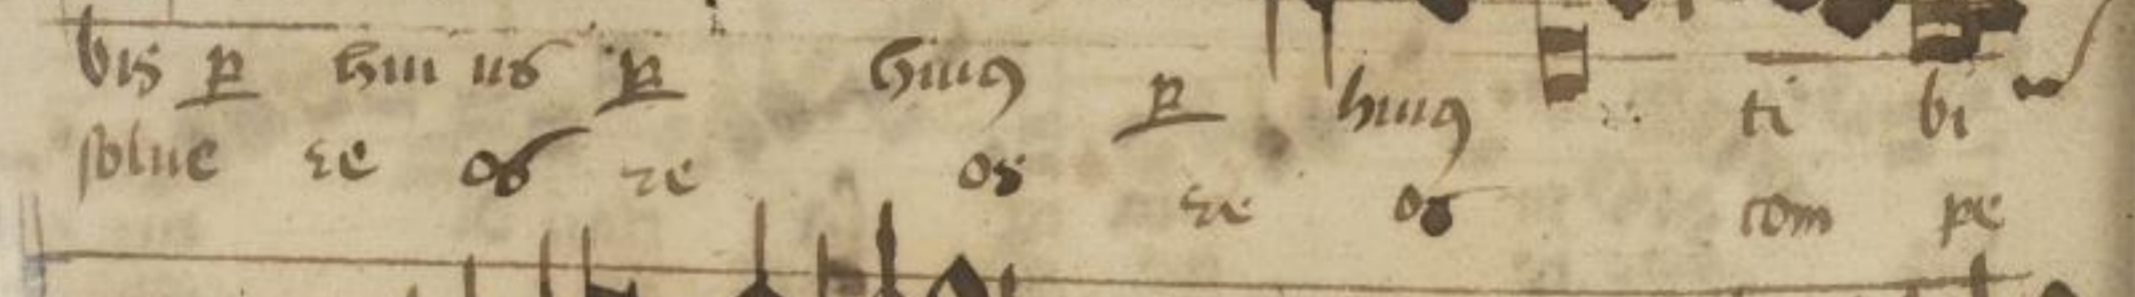 bis ꝑ huius ꝑ huiꝰ ꝑ huiꝰ ti bi
solue re os re os re os com pe